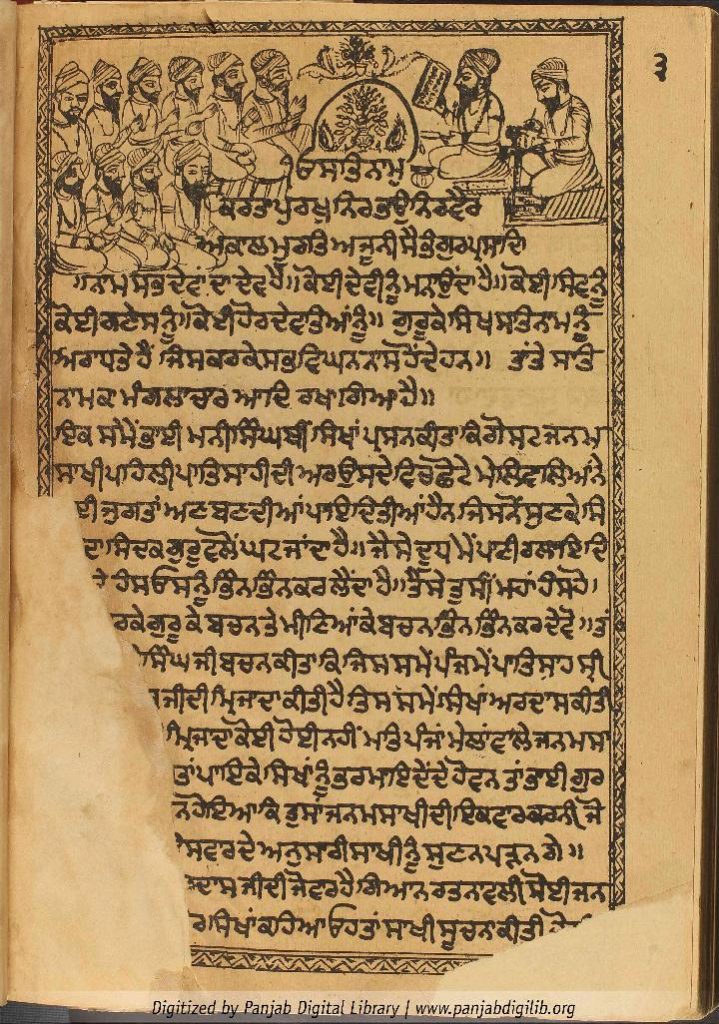 ੩
ੴ ਸਤਿਨਾਮੁ
ਕਰਤਾਪੁਰਖੁਨਿਰਭਉਨਿਰਵੈਰ
ਅਕਾਲਮੂਰਤਿਅਜੂਨੀਸੈਭੰਗੁਰਪ੍ਰਸਾਦਿ
॥ਨਾਮਸਭਦੇਵਾਂਦਾਦੇਵਹੈ॥ਕੋਈਦੇਵੀਨੂੰਮਨਾਉਂਦਾਹੈ॥ਕੋਈਸਿਵਨੂੰ
ਕੋਈਗਣੇਸਨੂੰ॥ਕੋਈਹੋਰਦੇਵਤਿਆਂਨੂੰ॥ ਗੁਰੂਕੇਸਿਖਸਤਿਨਾਮਨੂੰ
ਅਰਾਧਤੇਹੈਂ ਜਿਸਕਰਕੇਸਭਵਿਘਨਨਾਸਹੋਂਦੇਹਨ॥ ਤਾਂਤੇ ਸਤਿ
ਨਾਮਕਾ ਮੰਗਲਾਚਾਰ ਆਦਿ ਰਖਾਗਿਆਹੈ॥
ਇਕਸਮੇਂਭਾਈਮਨੀਸਿੰਘਥੀਂਸਿਖਾਂਪ੍ਰਸਨਕੀਤਾਕਿਗੋਸਟਜਨਮ
ਸਾਖੀਪਹਿਲੀਪਾਤਿਸਾਹੀਦੀਅਰਉਸਦੇਵਿਚਛੋਟੇਮੇਲਵਾਲਿਆਂਨੇ
ਈਜੁਗਤਾਂਅਣਬਣਦੀਆਂਪਾਇਦਿਤੀਆਂਹੈਨਜਿਸਨੋਂਸੁਣਕੇਸਿ
ਦਾਸਿਦਕਗੁਰੂਵਲੋਂਘਟਜਾਂਦਾਹੈ॥ਜੈਸੇਦੂਧਮੇਂਪਾਣੀਰਲਾਇਦਿ
ਹੰਸਓਸਨੂੰਭਿੰਨਭਿੰਨਕਰਲੈਂਦਾਹੈ॥ਤੈਸੇਤੁਸੀਂਮਹਾਂਹੰਸਹੋ।
ਰਕੇਗੁਰੂਕੇਬਚਨਤੇਮੀਣਿਆਂਕੇਬਚਨਭਿੰਨਭਿੰਨਕਰਦੇਵੋ॥ਤਾਂ
ਸਿੰਘਜੀਬਚਨਕੀਤਾਕਿਜਿਸਸਮੇਂਪੰਜਮੇਂਪਾਤਿਸਾਹਸ੍ਰੀ
ਜੀਦੀਮ੍ਰਿਜਾਦਾਕੀਤੀਹੈਤਿਸਸਮੇਂਸਿਖਾਂਅਰਦਾਸਕੀਤੀ
ਮ੍ਰਿਜਾਦਾਕੋਈਹੋਈਨਹੀਂਮਤਿਪੰਜਾਂਮੇਲਾਂਵਾਲੇਜਨਮਸਾ
ਤਾਂਪਾਇਕੇਸਿਖਾਂਨੂੰਭਰਮਾਇਦੇਂਦੇਹੋਵਨਤਾਂਭਾਈਗੁਰ
ਨਹੋਇਆਕਿਤੁਸਾਂਜਨਮਸਾਖੀਦੀਇਕਵਾਰਕਰਨੀਜੋ
ਸਵਾਰਦੇਅਨੁਸਾਰੀਸਾਖੀਨੂੰਸੁਣਨਪੜ੍ਹਨਗੇ॥
ਦਾਸਜੀਦੀਜੋਵਾਰਹੈਗਿਆਨਰਤਨਾਵਲੀਸੋਈਜਨ
ਰਸਿਖਾਂਕਹਿਆਓਹਤਾਂਸਾਖੀਸੂਚਨਕੀਤੀ
Digitized by Panjab Digital Library | www.panjabdigilib.org